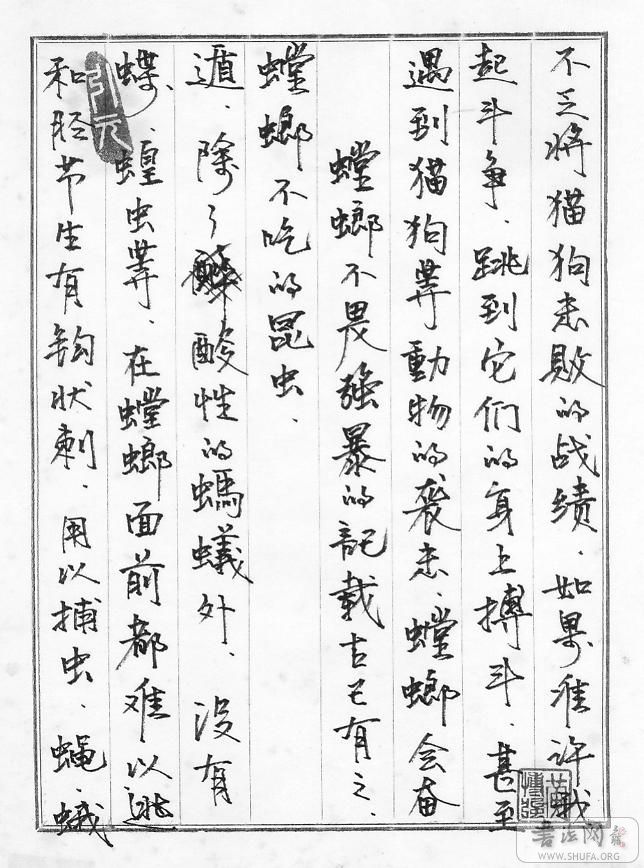 不乏将猫狗击败的战绩．如果准许
起斗争．跳到它们的身上搏斗．甚至
遇到猫狗等動物的袭击．螳螂会奋
螳螂不畏強暴的記載古已有之．
螳螂不吃的昆虫．
遁．除了酸性的螞蟻外．没有
蝶、蝗虫等．在螳螂面前都难以逃
和胫节生有鈎状刺．用以捕虫．蝇、蛾
引元
書法网
WWW.SHUFA.ORG